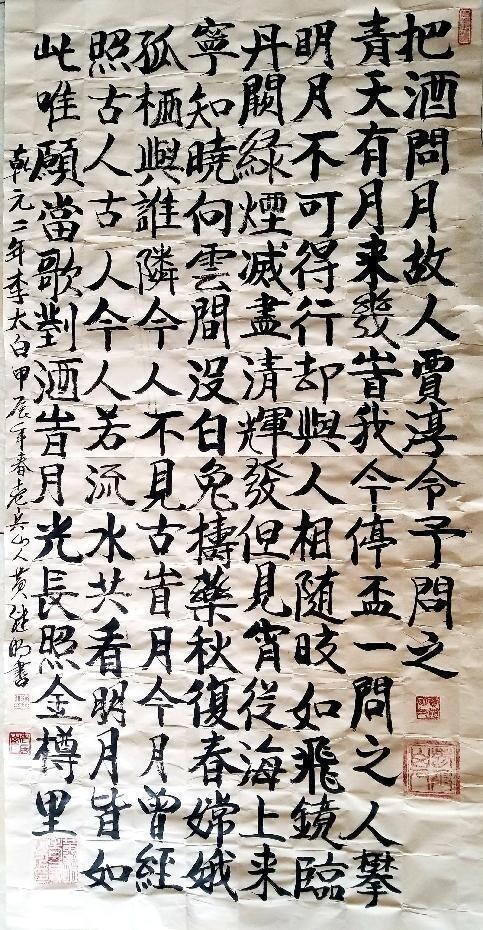 把酒問月故人賈淳令予問之
青天有月来幾旹我今停盃一問之人攀
明月不可得行却與人相随晈如飛鏡臨
丹闕緑煙滅盡清輝發但見宵從海上来
寧知曉向雲間沒白兔擣藥秋復春嫦娥
孤栖與誰隣今人不見古旹月今月曾經
照古人古人今人若流水共看明月皆如
此唯願當歌對酒旹月光長照金樽里
乾元二年李太白甲辰年春山人黄書